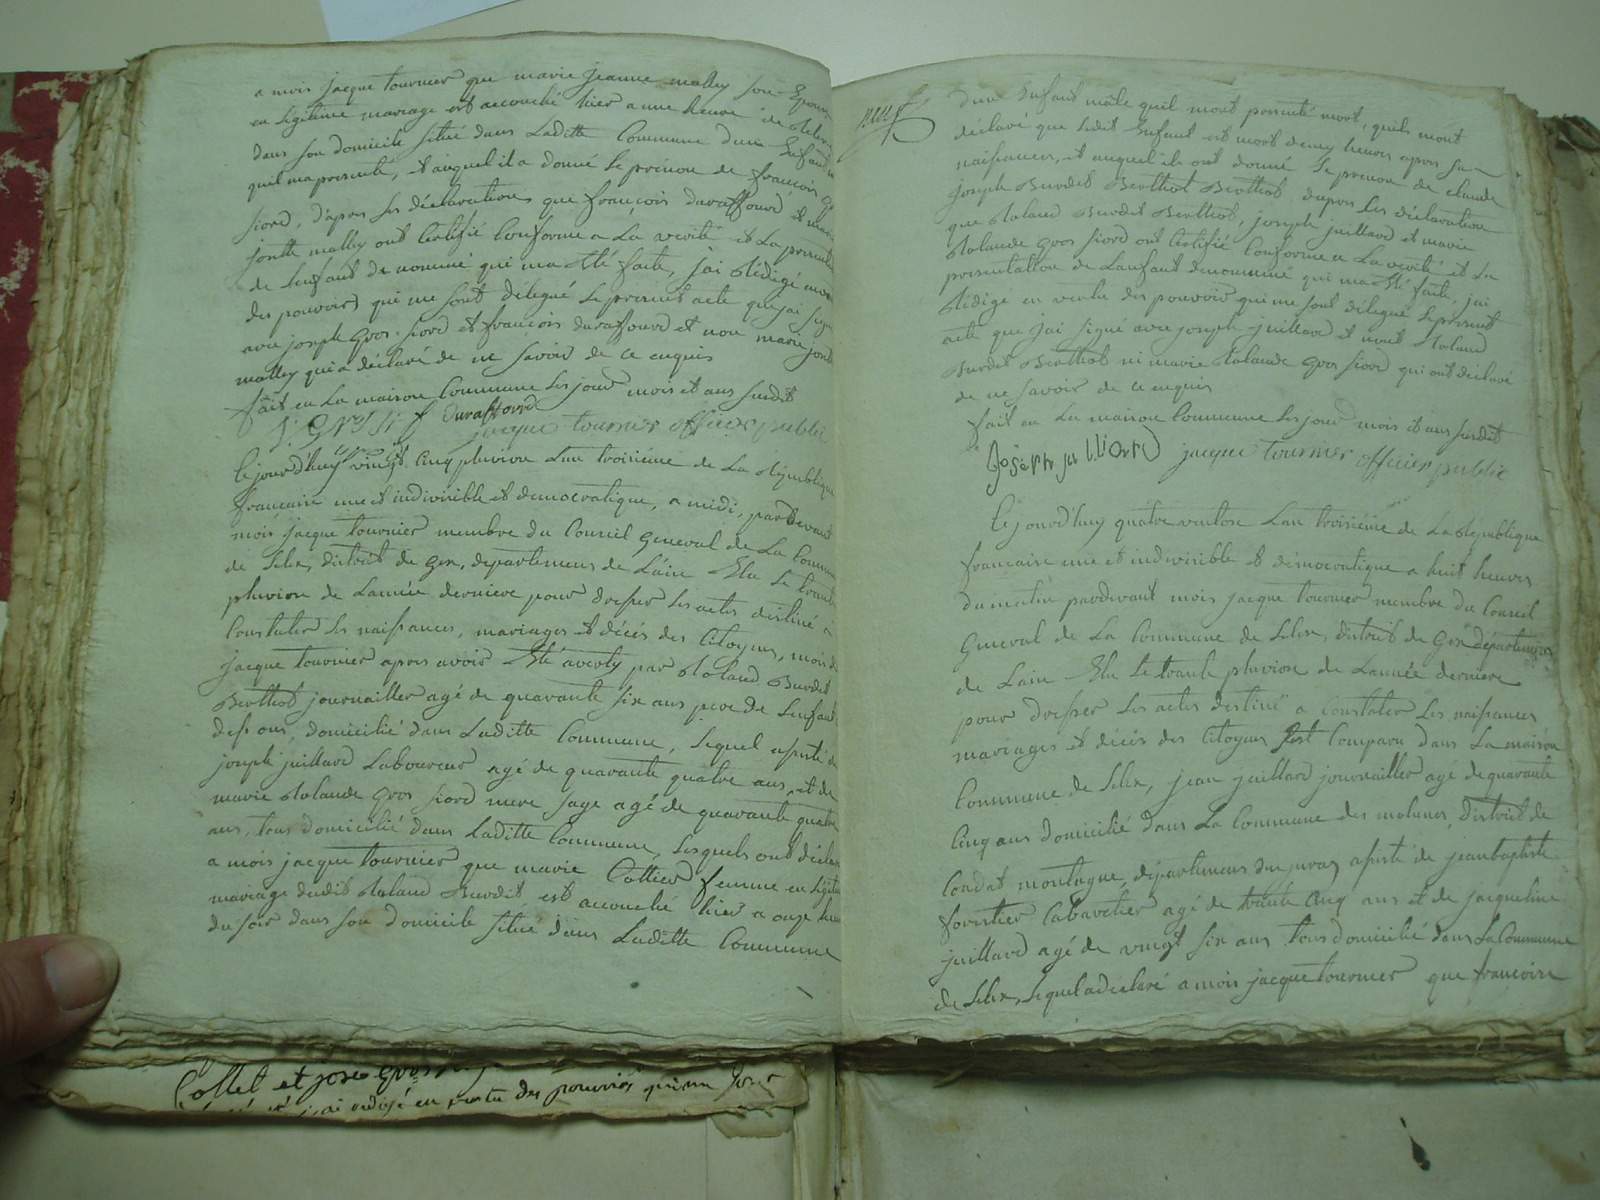 a mois jacque tournier que marie jeanne malley son Epouse
en legitime mariage est accouché hier a une heure de
dans son domicile situé dans Laditte Commune dun Enfant
quil ma presenté, et auquel il a donné le prenom de françois
fiord, daprés les déclarations que françois duraffourd et marie
jonte malley ont Certifié Conforme a La verité et La presentation
de lenfant denommé qui ma Eté faite, jai rédigé
des pouvoirs qui me sont délegué le present acte que jai signé
avec joseph Gros-fiord et françois duraffourd et non marie jonte
malley qui a déclaré de ne savoir de ce enquis
fait en La maison Commune les jour mois et ans susdit
duraffourd
jacque tournier officier public
Cejourdhuy vingt Cinq pluviose Lan troisième de La République
francaise une et indivisible et democratique, a midi, pardevant
mois jacque tournier membre du Conseil General de La Commune
de Lelex, district de Gex, departement de Lain Elu Le trante
pluviose de Lannée derniere pour dresser les actes destiné à
Constater les naissances, mariages et décés des Citoyens, mois dit
jacque tournier apres avoir Eté averty par Roland Burdet
Berthot journailler agé de quarante six ans pere de Lenfant
dessous, domicilié dans Laditte Commune, Lequel assisté de
joseph juillard Laboureur agé de quarante quatre ans, et de
marie Rolande Gros fiord mere sage agé de quarante quatre
ans, tous domicilié dans Laditte Commune, Lesquels ont déclaré
a mois jacque tournier que marie Cottier femme en legitime
mariage dudit Roland Burdet est accouché hier a onze heures
du soir dans son domicile situé dans Laditte Commune
neuf
dun Enfant mâle quil mont presenté mort, quils mont
déclaré que ledit Enfant est mort demy heures apres sa
naissances, et auquel ils ont donné le prenom de claude
joseph Burdet Berthot Berthot, dapres les déclaration
que Roland Burdet Berthot, joseph juillard et marie
Rolande gros fiord ont Certifié Conforme a La verité et La
presentation de Lenfant denommé qui ma Eté faite, jai
rédigé en vertu des pouvoir qui me sont délegué le present
acte que jai signé avec joseph juillard et nont Roland
Burdet Berthot ni marie Rolande gros fiord qui ont déclaré
de ne savoir de ce enquis
fait en La maison Commune les jour mois et ans susdit
Joseph juilliard jacque tournier officier public
Cejourdhuy quatre ventose Lan troisième de La République
francaise une et indivisible et démocratique a huit heures
du matin pardevant mois jacque tournier membre du Conseil
General de La Commune de Lelex, district de Gex département
de Lain Elu Le trante pluviose de Lannée derniere
pour dresser les actes destiné a constater les naissances
mariages et décés des Citoyens Est Comparu dans La maison
Commune de Lelex, jean juillard journailler agé de quarante
Cinq ans domicilié dans La Commune des molunes, district de
Condat montagne, département du jura, assisté de jean baptiste
forestier Cabaretier agé de trante Cinq ans et de jacqueline
juillard agé de vingt six ans tous domicilié dans La Commune
de Lelex, Lequel a déclaré a mois jacque tournier que francoise
Collet et jose gros
jai redigé en vertu des pouvoirs qui me sont